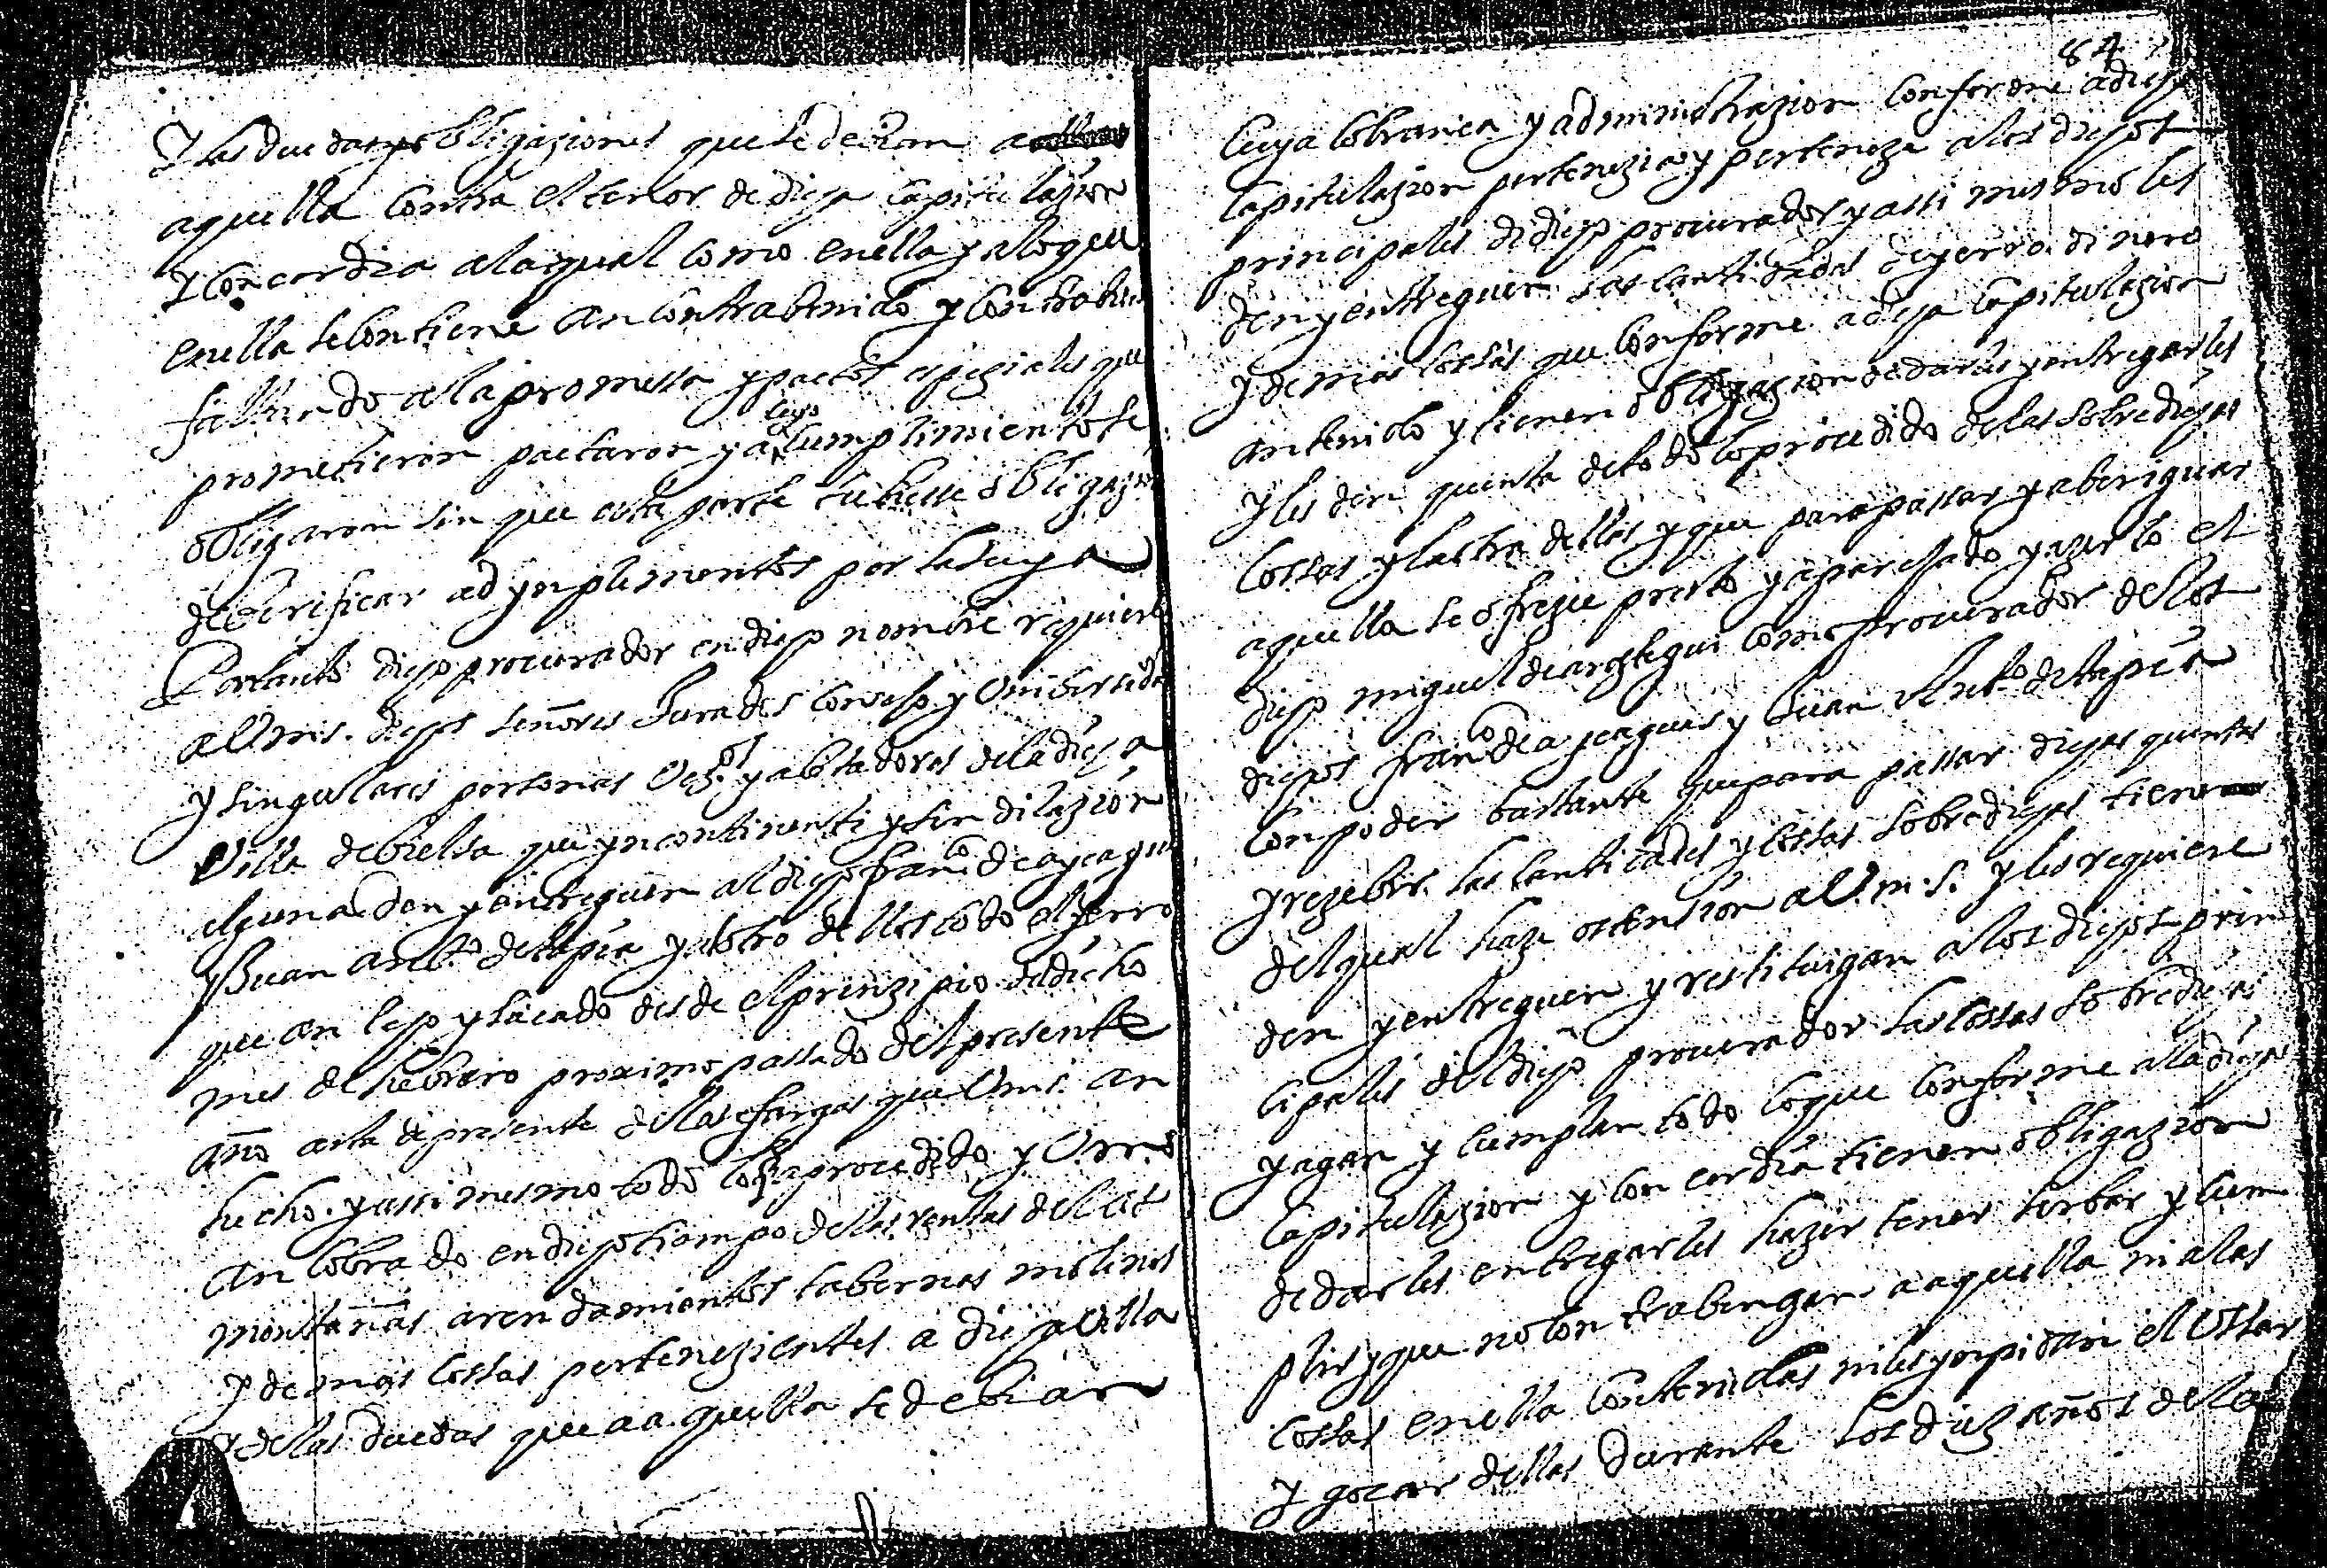 Y las deudas y obligaziones que se debian a
aquella contra el tenor de dicha capitulazion
Y concordia a la qual como en ella y a lo que
en ella se contiene an contrabenido y contrabienen
faltando a la promessa y pactos espeziales que
prometieron pactaron y a cuyo cumplimiento se
obligaron sin que esta parte tubiesse obligazion
de berificar adynplimentos por la suya
Por tanto dicho procurador en dicho nombre requiere
a Vms. dichos señores Jurados concejo y Unibersidad
y singulares personas vezos y abitadores de la dicha
Villa de bielsa que yncontinenti y sin dilazion
alguna den y entreguen al dicho franco de aycaguer
y Juan anto de tapia y al otro dellos todo el yerro
que an lcho y sacado desde el prinzipio del dicho
mes de febrero proximo passado del presente
año asta de presente de las fargas que Vms. an
hecho. y assi mesmo todo lo q a procedido y Vms.
an cobrado en dicho tiempo de las rentas de las
montañas arendamientos tabernas molinos
Y demas cossas pertenezientes a dicha villa
y de las deudas que a aquella se debian
84
Cuya cobranza y administrazion conforme a dicha
Capitulazion pertenezia y perteneze a los dichos
principales de dicho procurador y assi mesmo les
den y entreguen las cantidades de yerro dinero
Y demas cossas que conforme a dicha capitulazion
an tenido y tienen obligazion de darles y entregarles
Y les den quenta de todo lo procedido de las sobredichas
cossas y la otra dellas y que para passar y aberiguar
aquella se ofreze presto y aparejado y azerlo el
dicho miguel de aroztegui como procurador de los
dichos franco de aycaguer y Juan Anto de tapia
con poder bastante que para passar dichas quentas
y rezebir las cantidades y cossas sobredichas tiene
del qual haze ostension a V.m.s. Y les requiere
den y entreguen y restituigan a los dichos prin
cipales del dicho procurador las cossas sobredichas
y agan y cumplan todo lo que conforme a la dicha
Capitulazion y concordia tienen obligazion
de darles entregarles hazer tener serbar y cum
plir y que no contrabengan a aquella ni a las
cossas en ella contenidas ni les ynpidan el ussar
Y gozar dellas durante los diez años de la